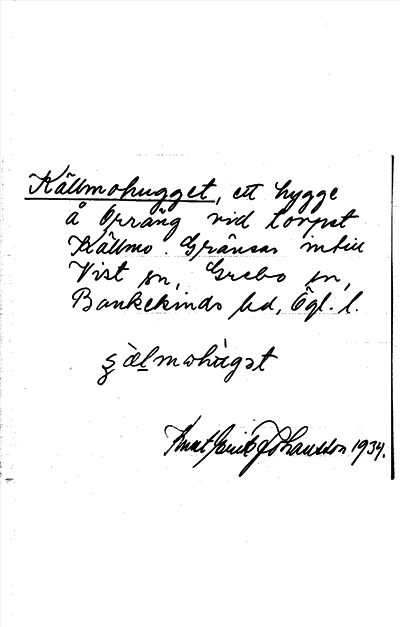 Källmohugget, ett hygge
å Örräng vid torpet
Källmo. Gränsar intill
Vist sn, Grebo sn,
Bankekinds hd, Ögl. l.
Knut Erik Johansson 1934.